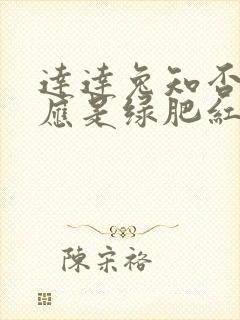 達達兔知否
應是绿肥紅
陳宋裕